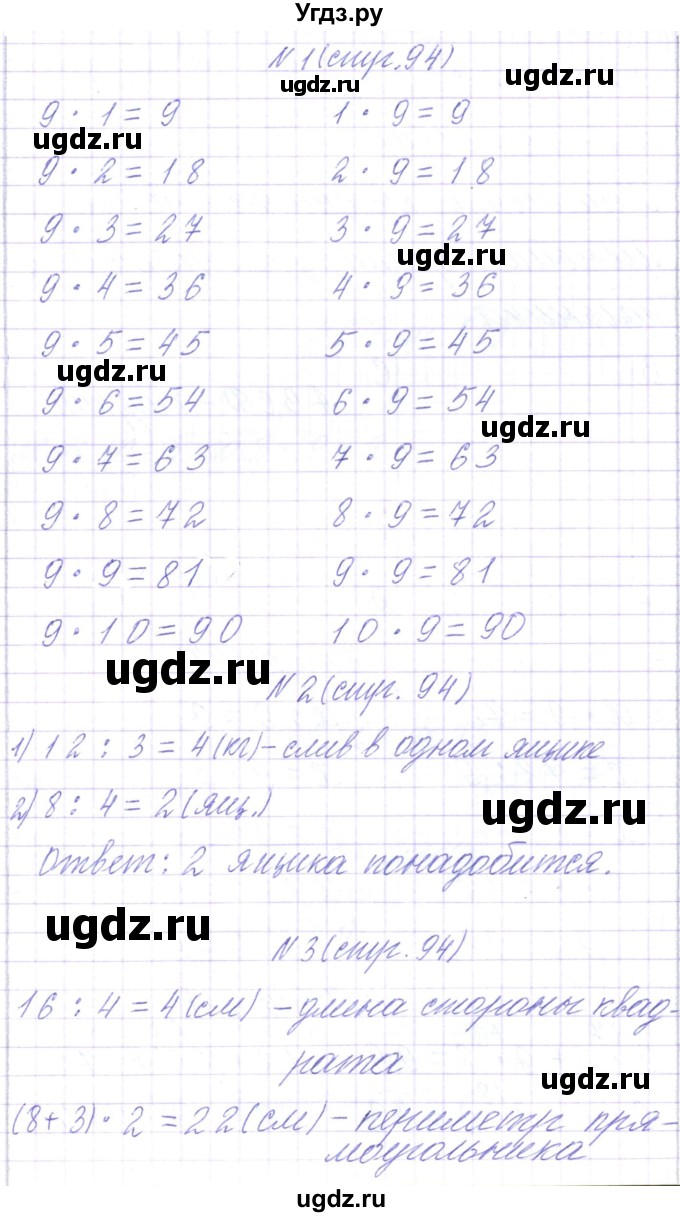 Угдз.ру
N 1 (стр. 94)
9 · 1 = 9 1 · 9 = 9
9 · 2 = 18 2 · 9 = 18
9 · 3 = 27 3 · 9 = 27
9 · 4 = 36 4 · 9 = 36
9 · 5 = 45 5 · 9 = 45
9 · 6 = 54 6 · 9 = 54
9 · 7 = 63 7 · 9 = 63
9 · 8 = 72 8 · 9 = 72
9 · 9 = 81 9 · 9 = 81
9 · 10 = 90 10 · 9 = 90
N 2 (стр. 94)
1) 12 : 3 = 4 (кг) – слив в одном ящике
2) 8 : 4 = 2 (ящ.)
Ответ: 2 ящика понадобится.
N 3 (стр. 94)
16 : 4 = 4 (см) – длина стороны квад-
рата
(8 + 3) · 2 = 22 (см) – периметр пря-
моугольника
ugdz.ru
ugdz.ru
ugdz.ru
ugdz.ru
ugdz.ru
ugdz.ru
ugdz.ru
ugdz.ru
ugdz.ru
ugdz.ru